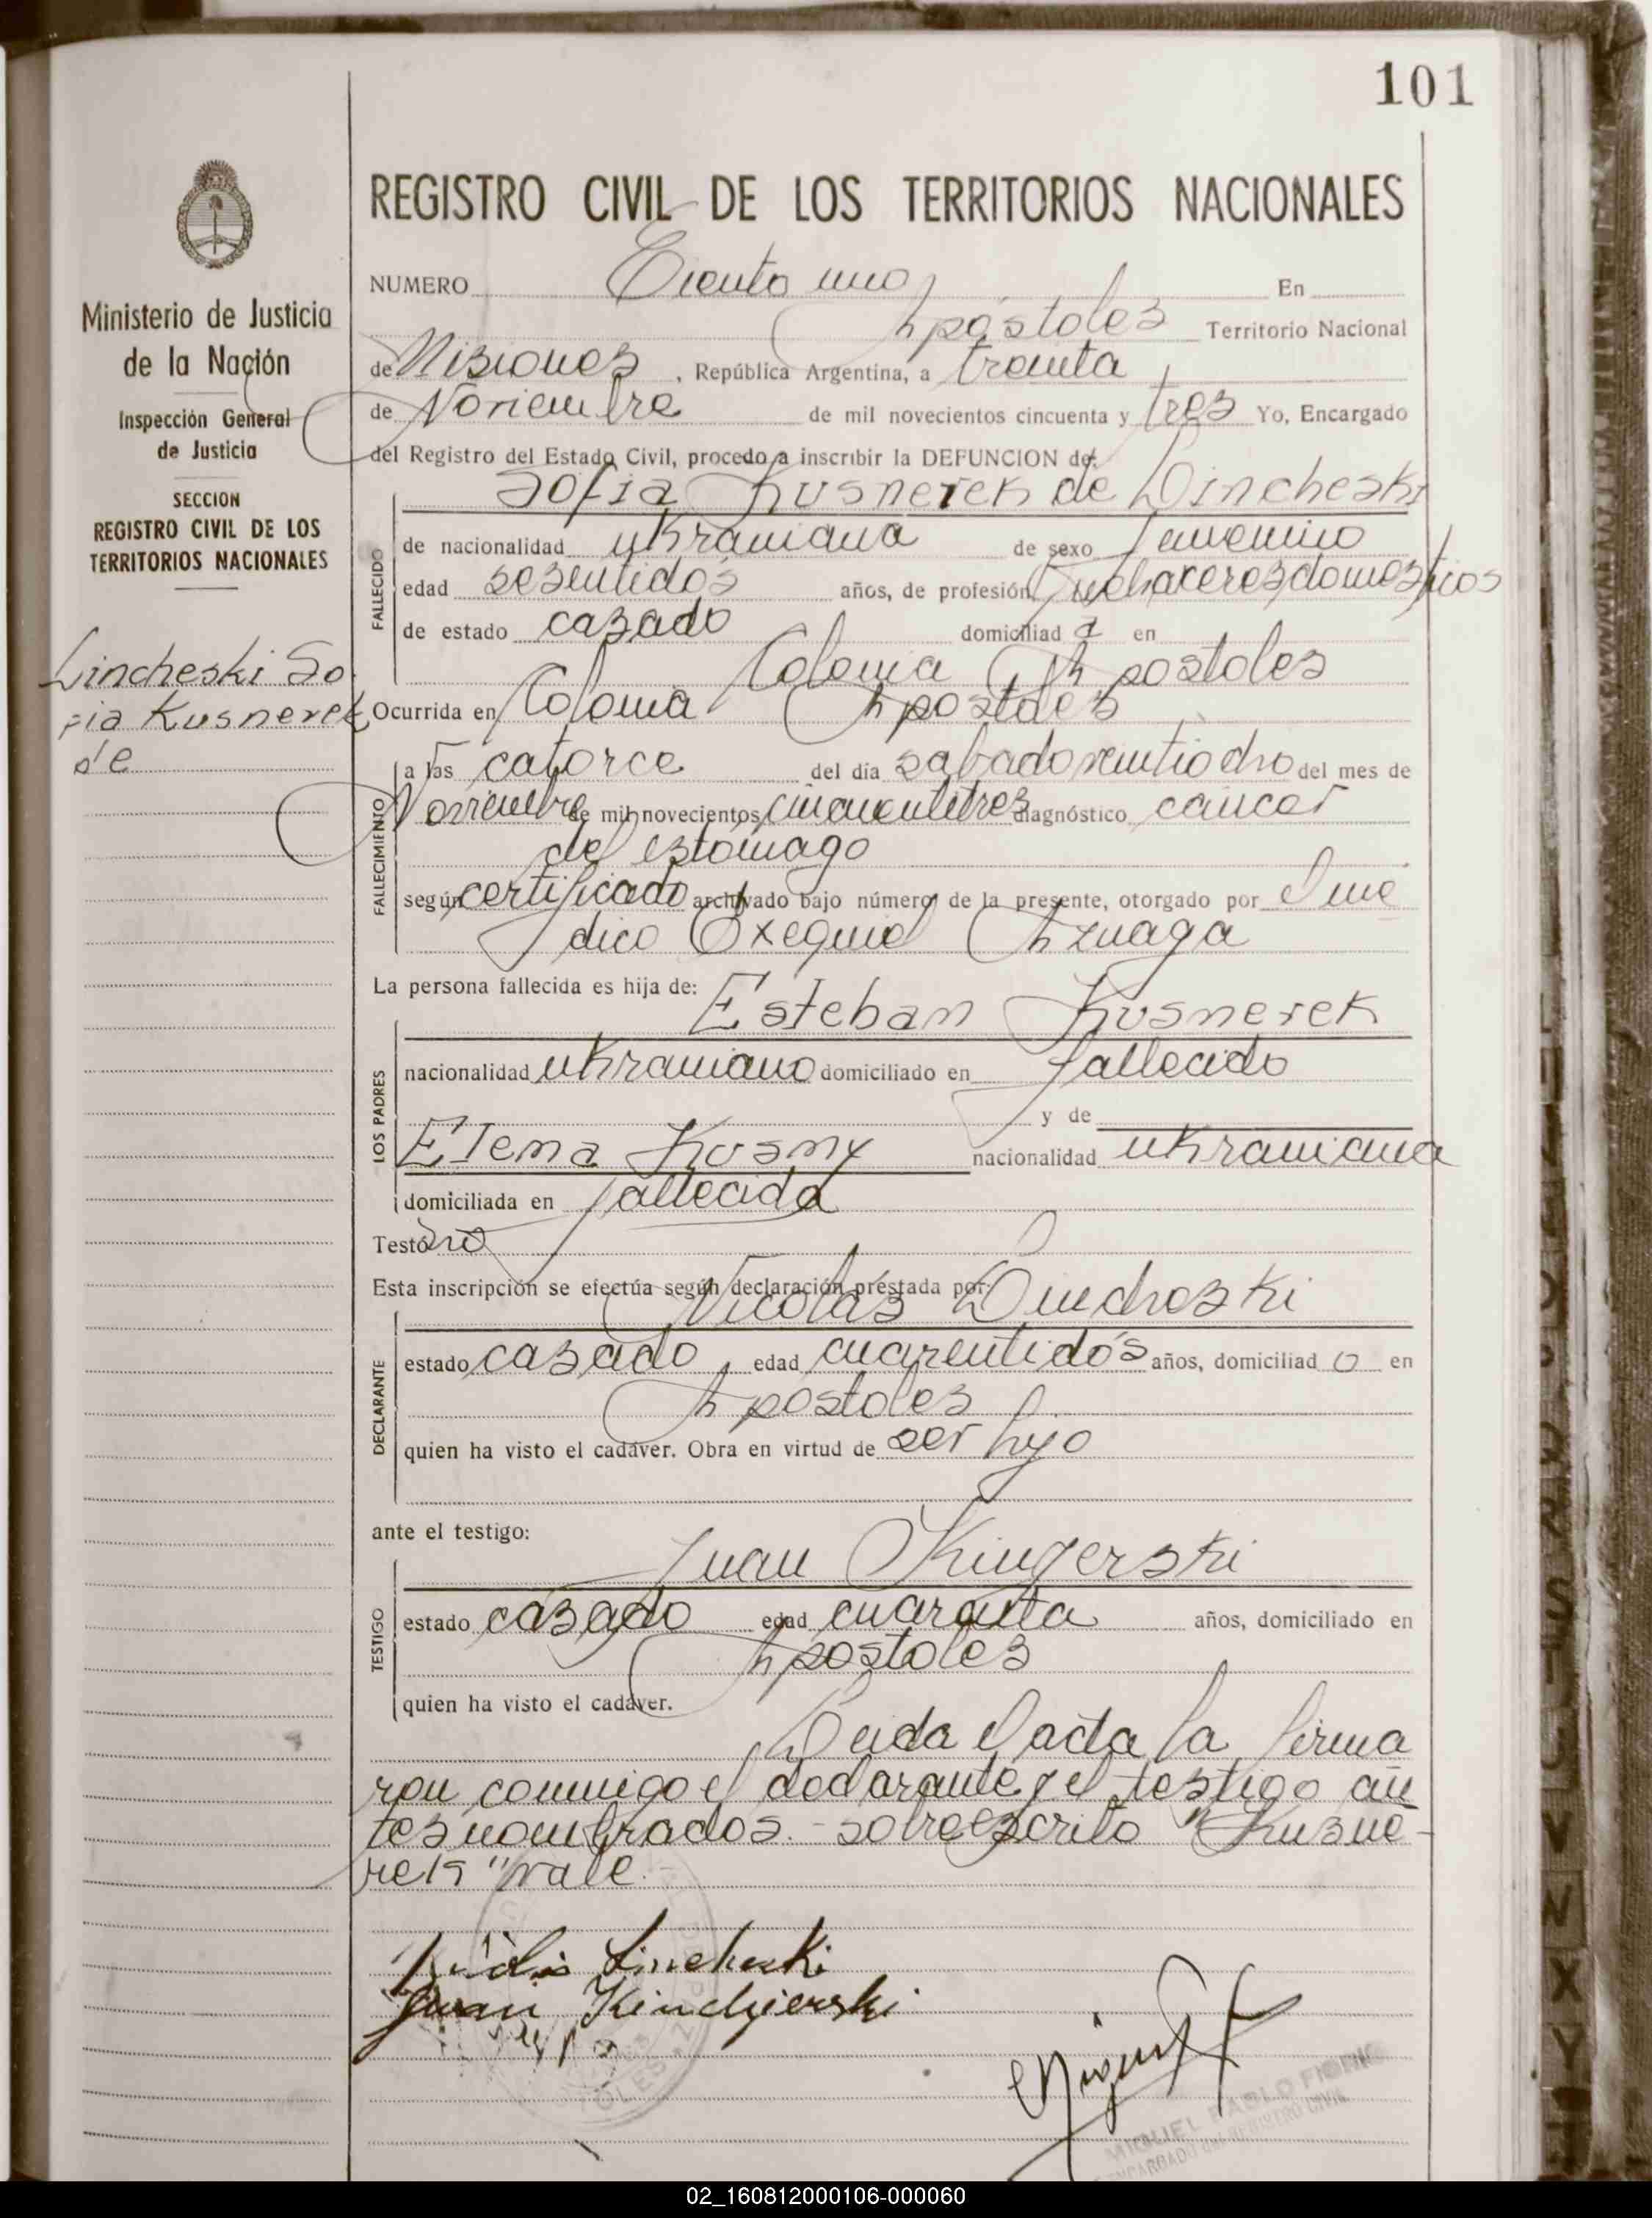 101
Ministerio de Justicia
de la Nación
Inspección General
de Justicia
SECCION
REGISTRO CIVIL DE LOS
TERRITORIOS NACIONALES
Lincheski So
fia Kusnerek
de
REGISTRO CIVIL DE LOS TERRITORIOS NACIONALES
NUMERO Ciento uno En
Apóstoles Territorio Nacional
de Misiones, República Argentina, a treinta
de Noviembre de mil novecientos cincuenta y tres Yo, Encargado
del Registro del Estado Civil, procedo a inscribir la DEFUNCION de:
Sofia Kusnerek de Lincheski
FALLECIDO
de nacionalidad ukraniana de sexo femenino
edad sesentidós años, de profesión Quehaceres domesticos
de estado casado domiciliad a en
Colonia Apostoles
Ocurrida en Colonia Apostoles
FALLECIMIENTO
a las catorce del día sabado veintiocho del mes de
Noviembre de mil novecientos cincuentitres diagnóstico cáncer
del estomago
según certificado archivado bajo número de la presente, otorgado por el mé
dico Exequiel Aznaga
La persona fallecida es hija de:
Esteban Kusnerek
LOS PADRES
nacionalidad ukraniano domiciliado en fallecido
y de
Elena Kusny nacionalidad ukraniana
domiciliada en fallecida
Testó no
Esta inscripción se efectúa según declaración prestada por:
Nicolás Lincheski
DECLARANTE
estado casado, edad cuarentidós años, domiciliad o en
Apostoles
quien ha visto el cadáver. Obra en virtud de ser hijo
ante el testigo:
Juan Kinyerski
TESTIGO
estado casado edad cuarenta años, domiciliado en
Apostoles
quien ha visto el cadáver.
Leida el acta la firma
ron conmigo el declarante y el testigo an
tes nombrados.- sobreescrito "Kusne-
rek" vale.-
Lincheski
Juan Kindzierski
MIGUEL PABLO
ENCARGADO del REGISTRO CIVIL
02_160812000106-000060